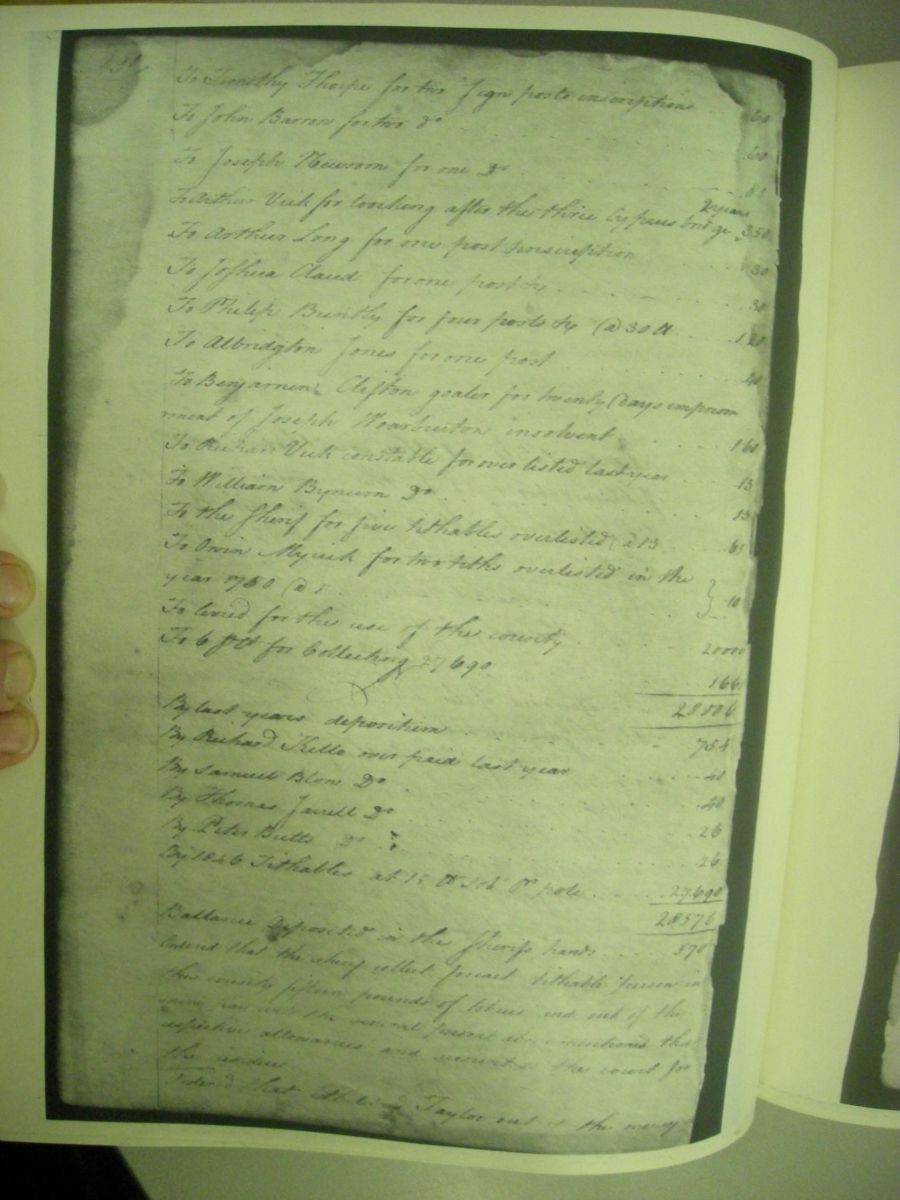 To Timothy Thorpe for two Sign posts inscriptions 60
To John Barron for two Do 60
To Joseph Newsom for one Do
To Arthur Vick for looking after the three Cypress bridge 2 years 350
To Arthur Long for one post & inscription 30
To Joshua Claud for one post &c 30
To Philip Bruntly for four posts &c @ 30 lb 120
To Albridgton Jones for one post 40
To Benjamin Clifton goaler for twenty Days imprison
ment of Joseph Warburton insolvent 160
To Richard Vick constable for over listed last year 15
To William Bynum Do 15
To the Sherif for five tithables overlisted @ 13 65
To Owin Myrick for two tiths overlisted in the
year 1750 @ 5 10
To levied for the use of the county 20000
To 6 P Ct for Collecting 27690 1661
28006
By last years depositum 754
By Richard Kello over paid last year 40
By Samuel Blow Do 40
By Thomas Jarrell Do 26
By Peter Butts Do 26
By 1846 Tithables at 15 lb Tob P pole 27690
28576
Ballance deposited in the Sherifs hands 570
Orderd that the sherif collect from each tithable person in
this county fifteen pounds of tobacco and out of the
same pay unto the several persons above mentioned their
respective allowances and account to the court for
the residue
Orderd that Etheld Taylor out of the money